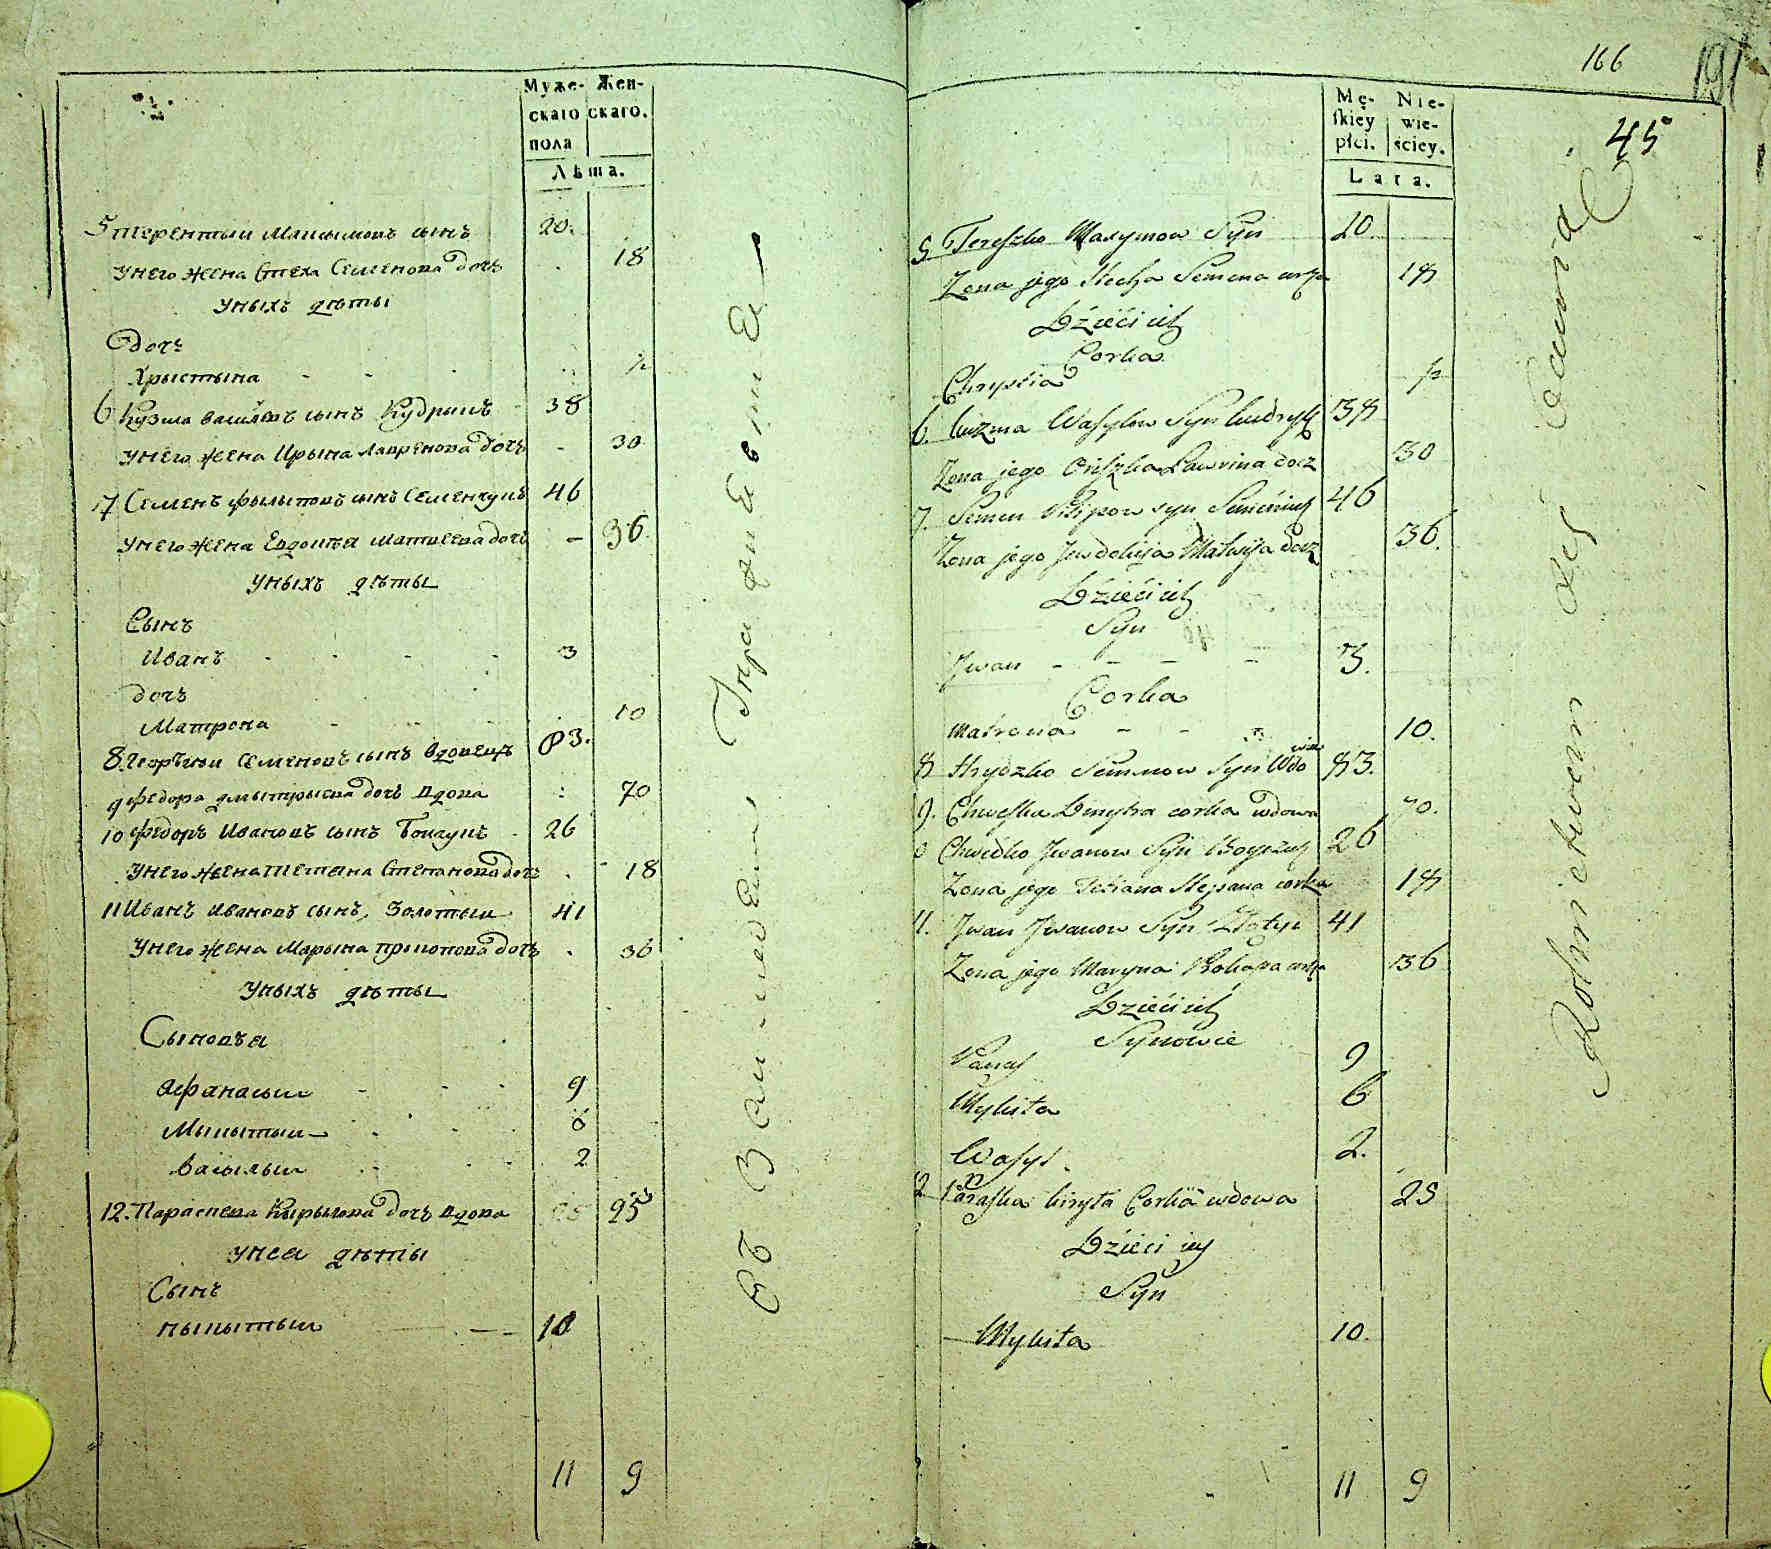 Муже- Жен-
скаго скаго.
пола
Лѣта.
5 Терентыи Максымовъ сынъ 20.
У него жена Стеха Семенова дочъ 18
У ныхъ дѣты
Дочъ
Хрыстына - - - ½
6 Кузма Василевъ сынъ Кудрыкъ 38
У него жена Ирына Лавренова дочъ - 30
7 Семенъ Фылыповъ сынъ Семенчукъ 46
У него жена Евдокѣя Матвеева дочъ - 36.
У ныхъ дѣты
Сынъ
Иванъ - - - - 3
дочъ
Матрона - - - 10
8. Георъгии Семеновъ сынъ вдовецъ 83.
9 Федора Дмытрыева дочъ вдова 70
10 Федоръ Ивановъ сынъ Бойчукъ 26
У него жена Тетяна Степанова дочъ 18
11 Иванъ Ивановъ сынъ, Золотыи 41
У него жена Марына Прокопова дочъ 36
У ныхъ дѣты
Сыновъя
Афанасыи - - - 9
Мыкытыи 6
Васылыи 2
12. Параскева Кырылова дочъ вдова 25
У нея дѣты
Сынъ
Ныкытыи 10
11 9
166
191
45
Mę- Nie-
skiey wie-
płci. ściey.
Lata.
5 Tereszko Maxymow Syn 20.
Zona jego Stecha Semena corka 18
Dzieći ich
Corka
Chrystia ½
6. Kuzma Wasylow Syn Kudryk 38
Zona jego Oryszka Lawrina docz 30
7. Semen Filipow syn Semeniuk 46
Zona jego Jewdokija Matwija docz 36.
Dzieći ich
Syn
Jwan - - - - 3.
Corka
Matrona - - - 10.
8 Hrydzko Semenow Syn Wdowiec 83.
9. Chweska Dmytra corka wdowa 70.
Chwedko Jwanow Syn Boyczuk 26
Zona jego Tetiana Stepana corka 18
11. Jwan Jwanow Syn Złotyi 41
Zona jego Maryna Prokopa corka 36
Dzieći ich
Synowie
Panas 9
Mykita 6
Wasyl. 2.
12 Paraska Kiryła Corka wdowa 25
Dzieci iey
Syn
Mykita 10.
11 9